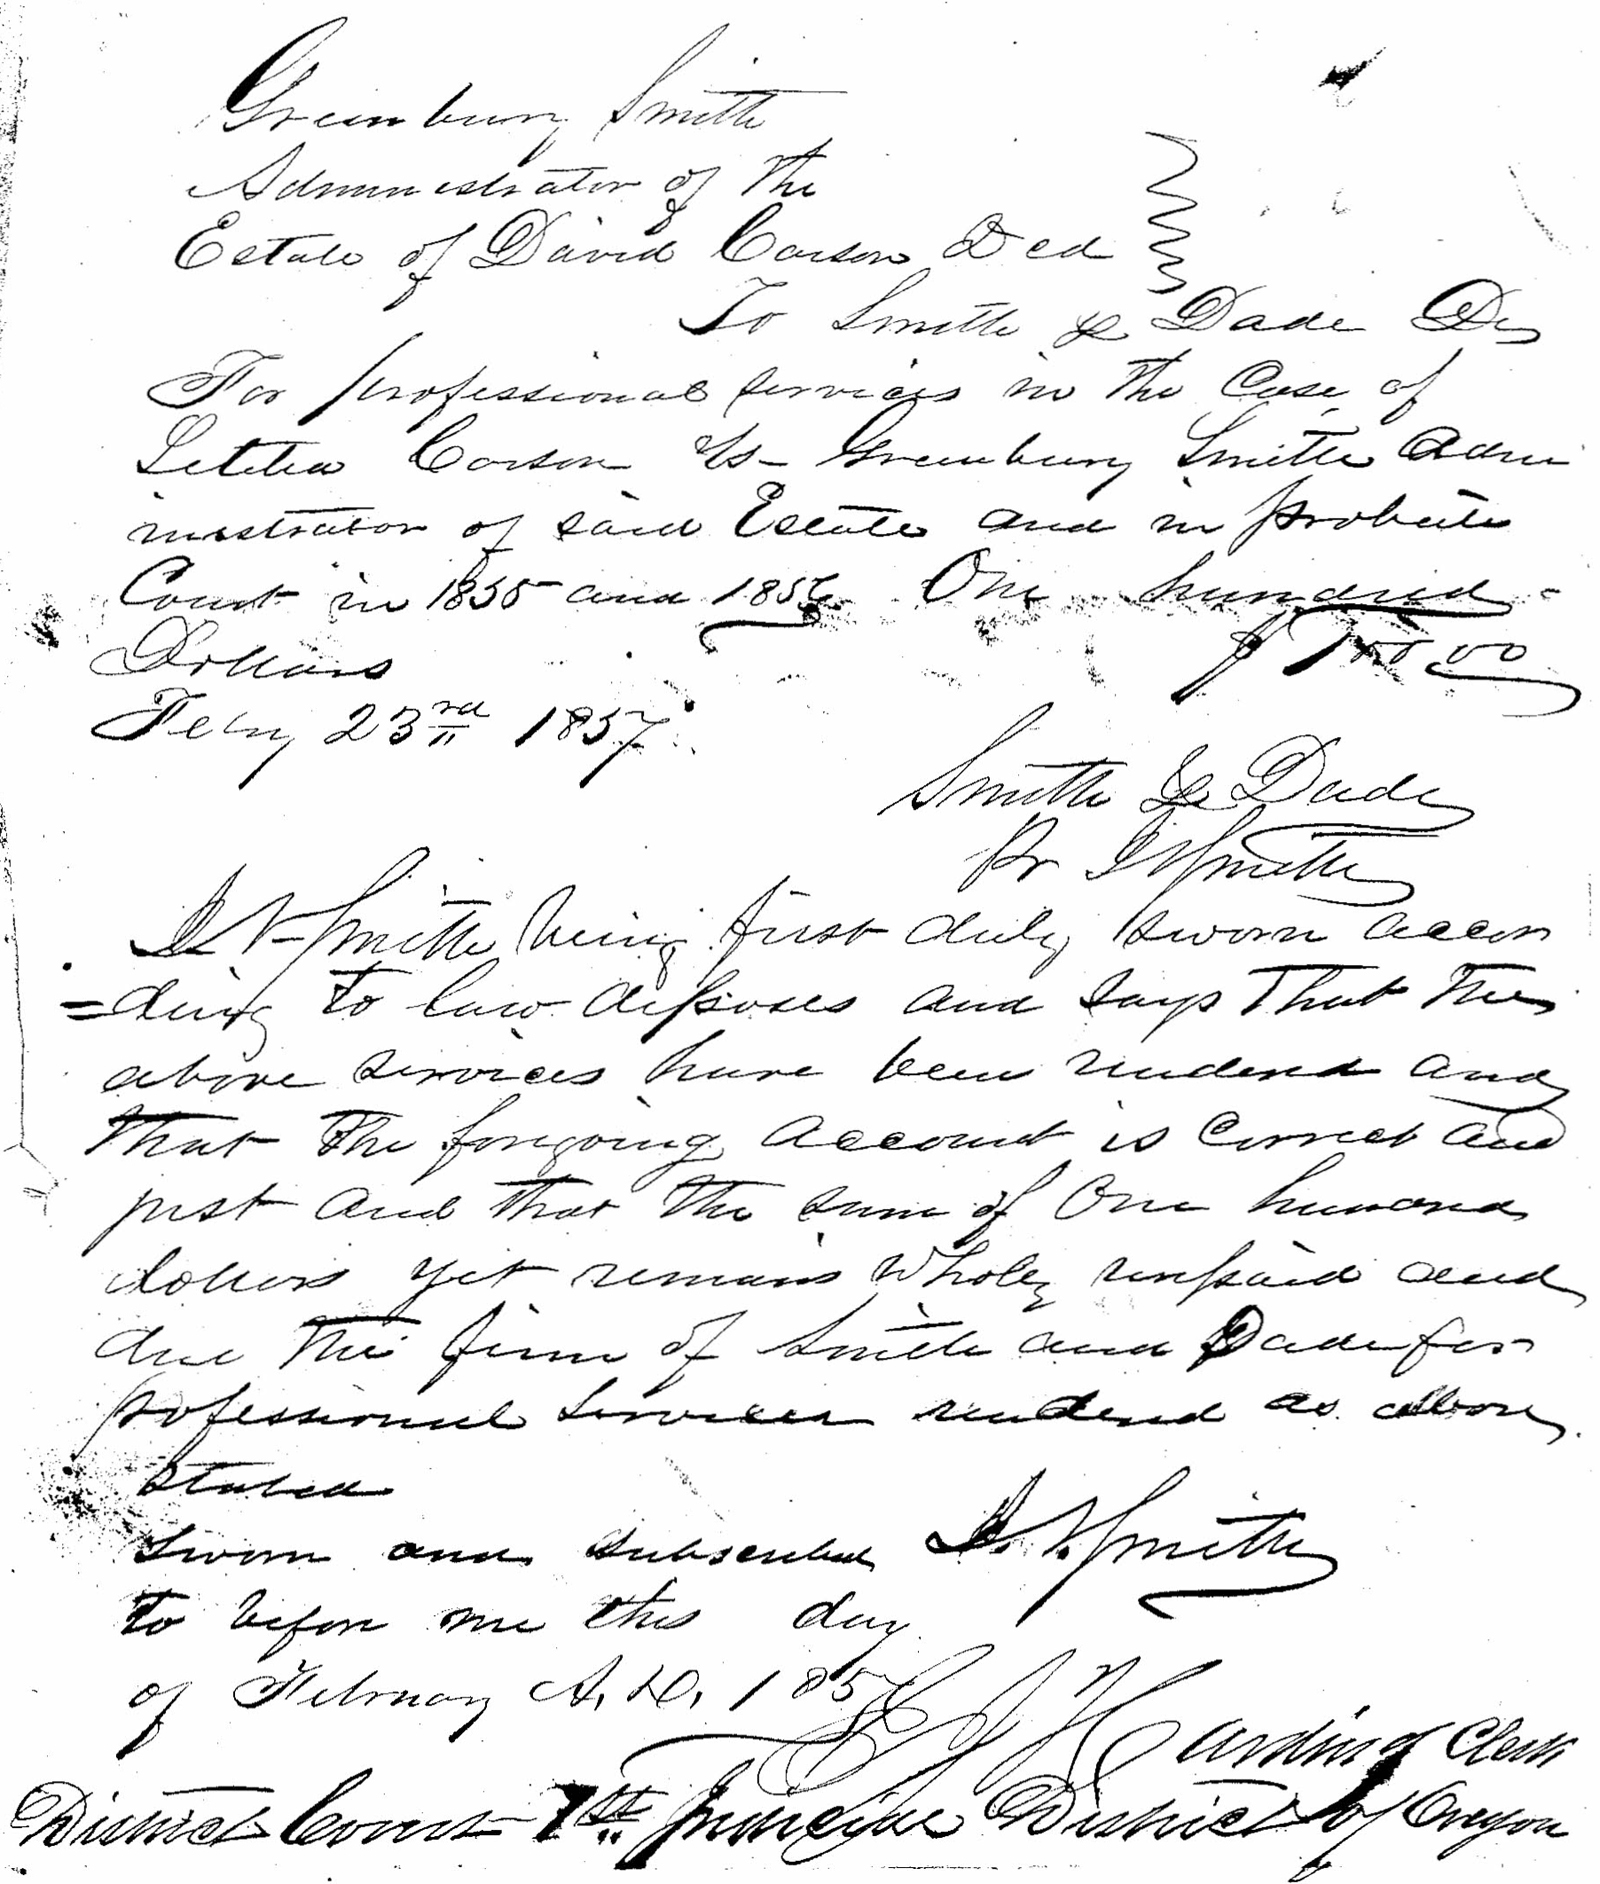 Greenbury Smith
Administrator of the
Estate of David Carson Decd
To Smith & Dade Dr
For professional services in the Case of
Letitia Carson vs Greenbury Smith Admi
inistrator of said Estate and in probate
Court in 1855 and 1856 One hundred
Dollars $100.00
Feby 23rd 1857
Smith & Dade
Pr I N Smith
I. N. Smith being first duly sworn accor
=ding to law deposes and says that the
above services have been renderd and
that the foregoing account is correct and
just and that the sum of One hundred
dollars yet remains wholy unpaid and
due the firm of Smith and Dade for
professional services renderd as above
stated
Sworn and subscribed I. N. Smith
to before me this day
of February A. D. 1857
Harding Clerk
District Court 1st Judicial District of Oregon